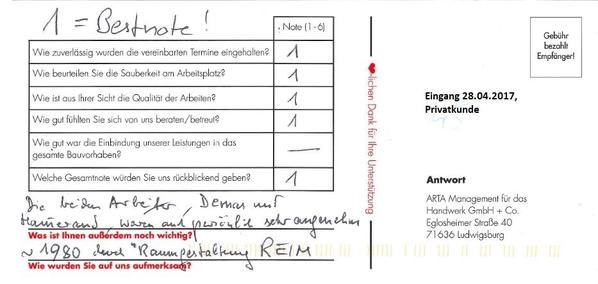 1 = Bestnote!
Note (1-6)
Wie zuverlässig wurden die vereinbarten Termine eingehalten? 1
Wie beurteilen Sie die Sauberkeit am Arbeitsplatz? 1
Wie ist aus Ihrer Sicht die Qualität der Arbeiten? 1
Wie gut fühlten Sie sich von uns beraten/betreut? 1
Wie gut war die Einbindung unserer Leistungen in das
gesamte Bauvorhaben? —
Welche Gesamtnote würden Sie uns rückblickend geben? 1
Die beiden Arbeiter, und
waren auch persönlich sehr angenehm
Was ist Ihnen außerdem noch wichtig?
~ 1980 durch "Raumgestaltung REIM
Wie wurden Sie auf uns aufmerksam?
lichen Dank für Ihre Unterstützung
Gebühr
bezahlt
Empfänger!
Eingang 28.04.2017,
Privatkunde
Antwort
ARTA Management für das
Handwerk GmbH + Co.
Eglosheimer Straße 40
71636 Ludwigsburg